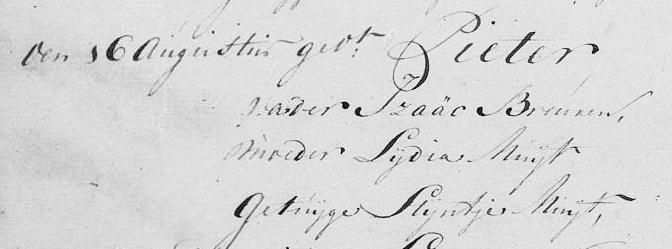 den 16 Augustus gebt. Pieter
vader Izaäc Breunen,
moeder Lydia Muijt
Getuijge Stijntje Muijt,